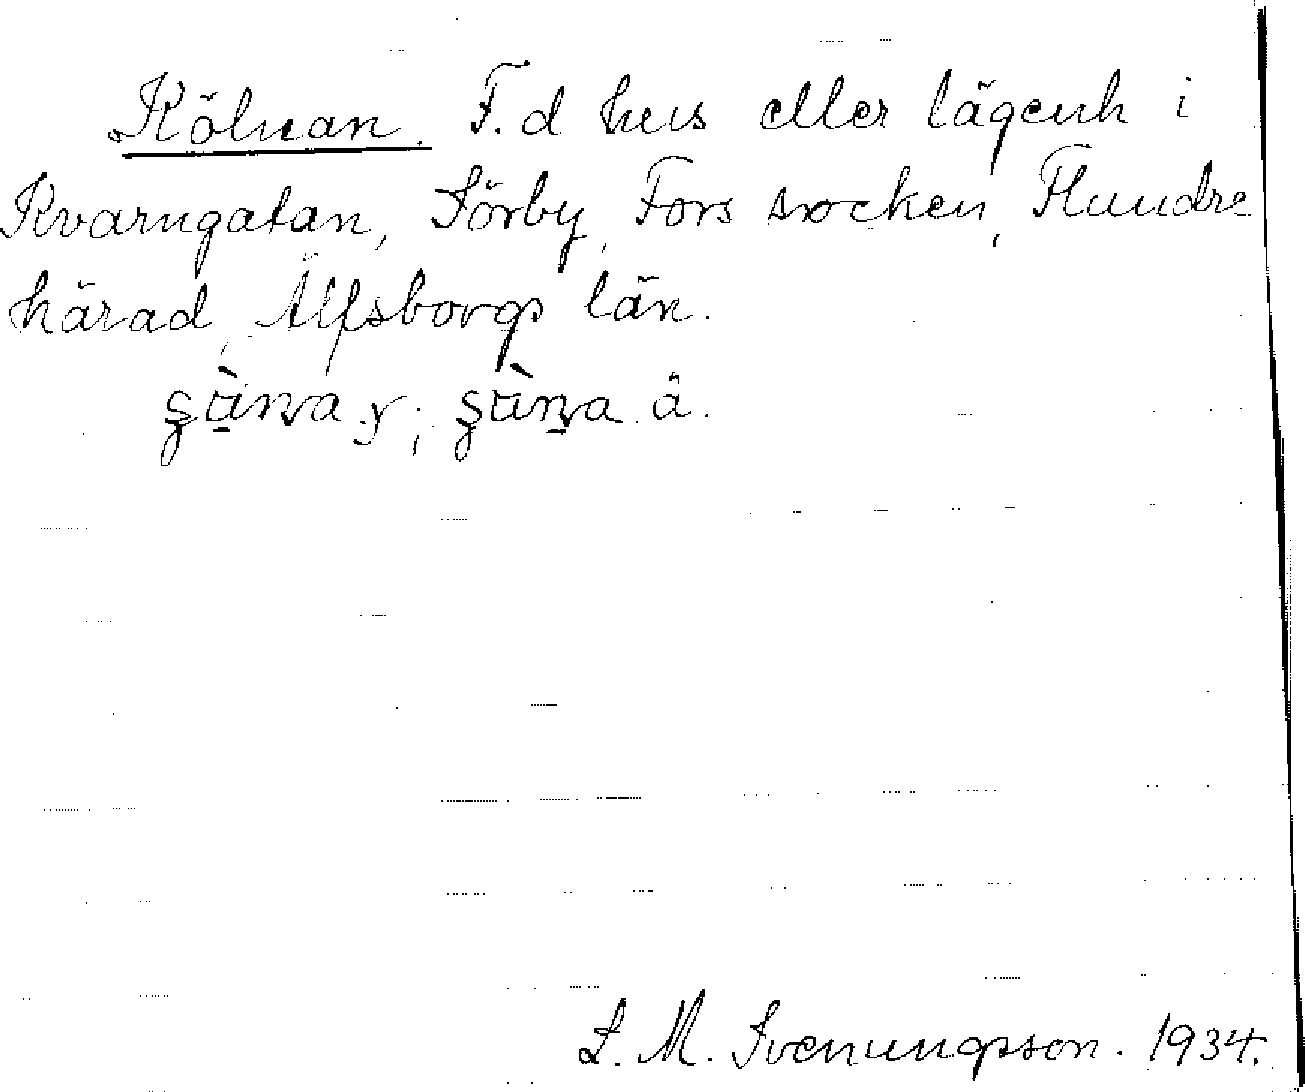 Kölnan. F.d hus eller lägenh i
Kvarngatan, Sörby, Fors socken, Flundre
härad, Älfsborgs län.
y; ä.
L. M. Svenungsson. 1934.